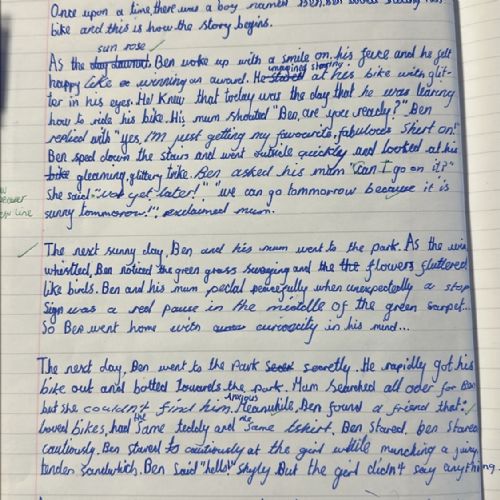 Once upon a time, there was a boy named Ben. Ben loved riding his
bike and this is how the story begins.
sun rose
As the day dawned Ben woke up with a smile on his face and he felt
imagined staring
happy like winning an award. He stared at his bike with glit-
ter in his eyes. He Knew that today was the day that he was learing
how to ride his bike. His mum shouted "Ben, are you ready?" Ben
replied with "yes, I'm just getting my favourite, fabulous shert on!"
Ben sped down the stairs and went outside quickly and looked at his
bike gleaming, glittery trike. Ben asked his mum "Can I go on it?"
She said "not yet later!" "we can go tommorow because it is
sunny tommorow!", exclaimed mum.
new line
The next sunny day, Ben and his mum went to the park. As the
whistled, Ben noticed the green grass swaying and the the flowers fluttered
like birds. Ben and his mum pedal peacefully when unexpectedly a stop
sign was a red pause in the middle of the green carpet...
So Ben went home with curiocity in his mind...
The next day, Ben went to the Park secretly. He rapidly got his
bike out and bolted towards the park. Mum searched all over for Ben
Anxious
but she couldn't find him. Meanwhile, Ben found a friend that
the
loved bikes, had same teddy and same tshirt. Ben Stared, ben stared
cautiously. Ben stared to cautiously at the girl while munching a juicy,
tender sandwhich. Ben said "hello!" shyly. But the girl didn't say anything.